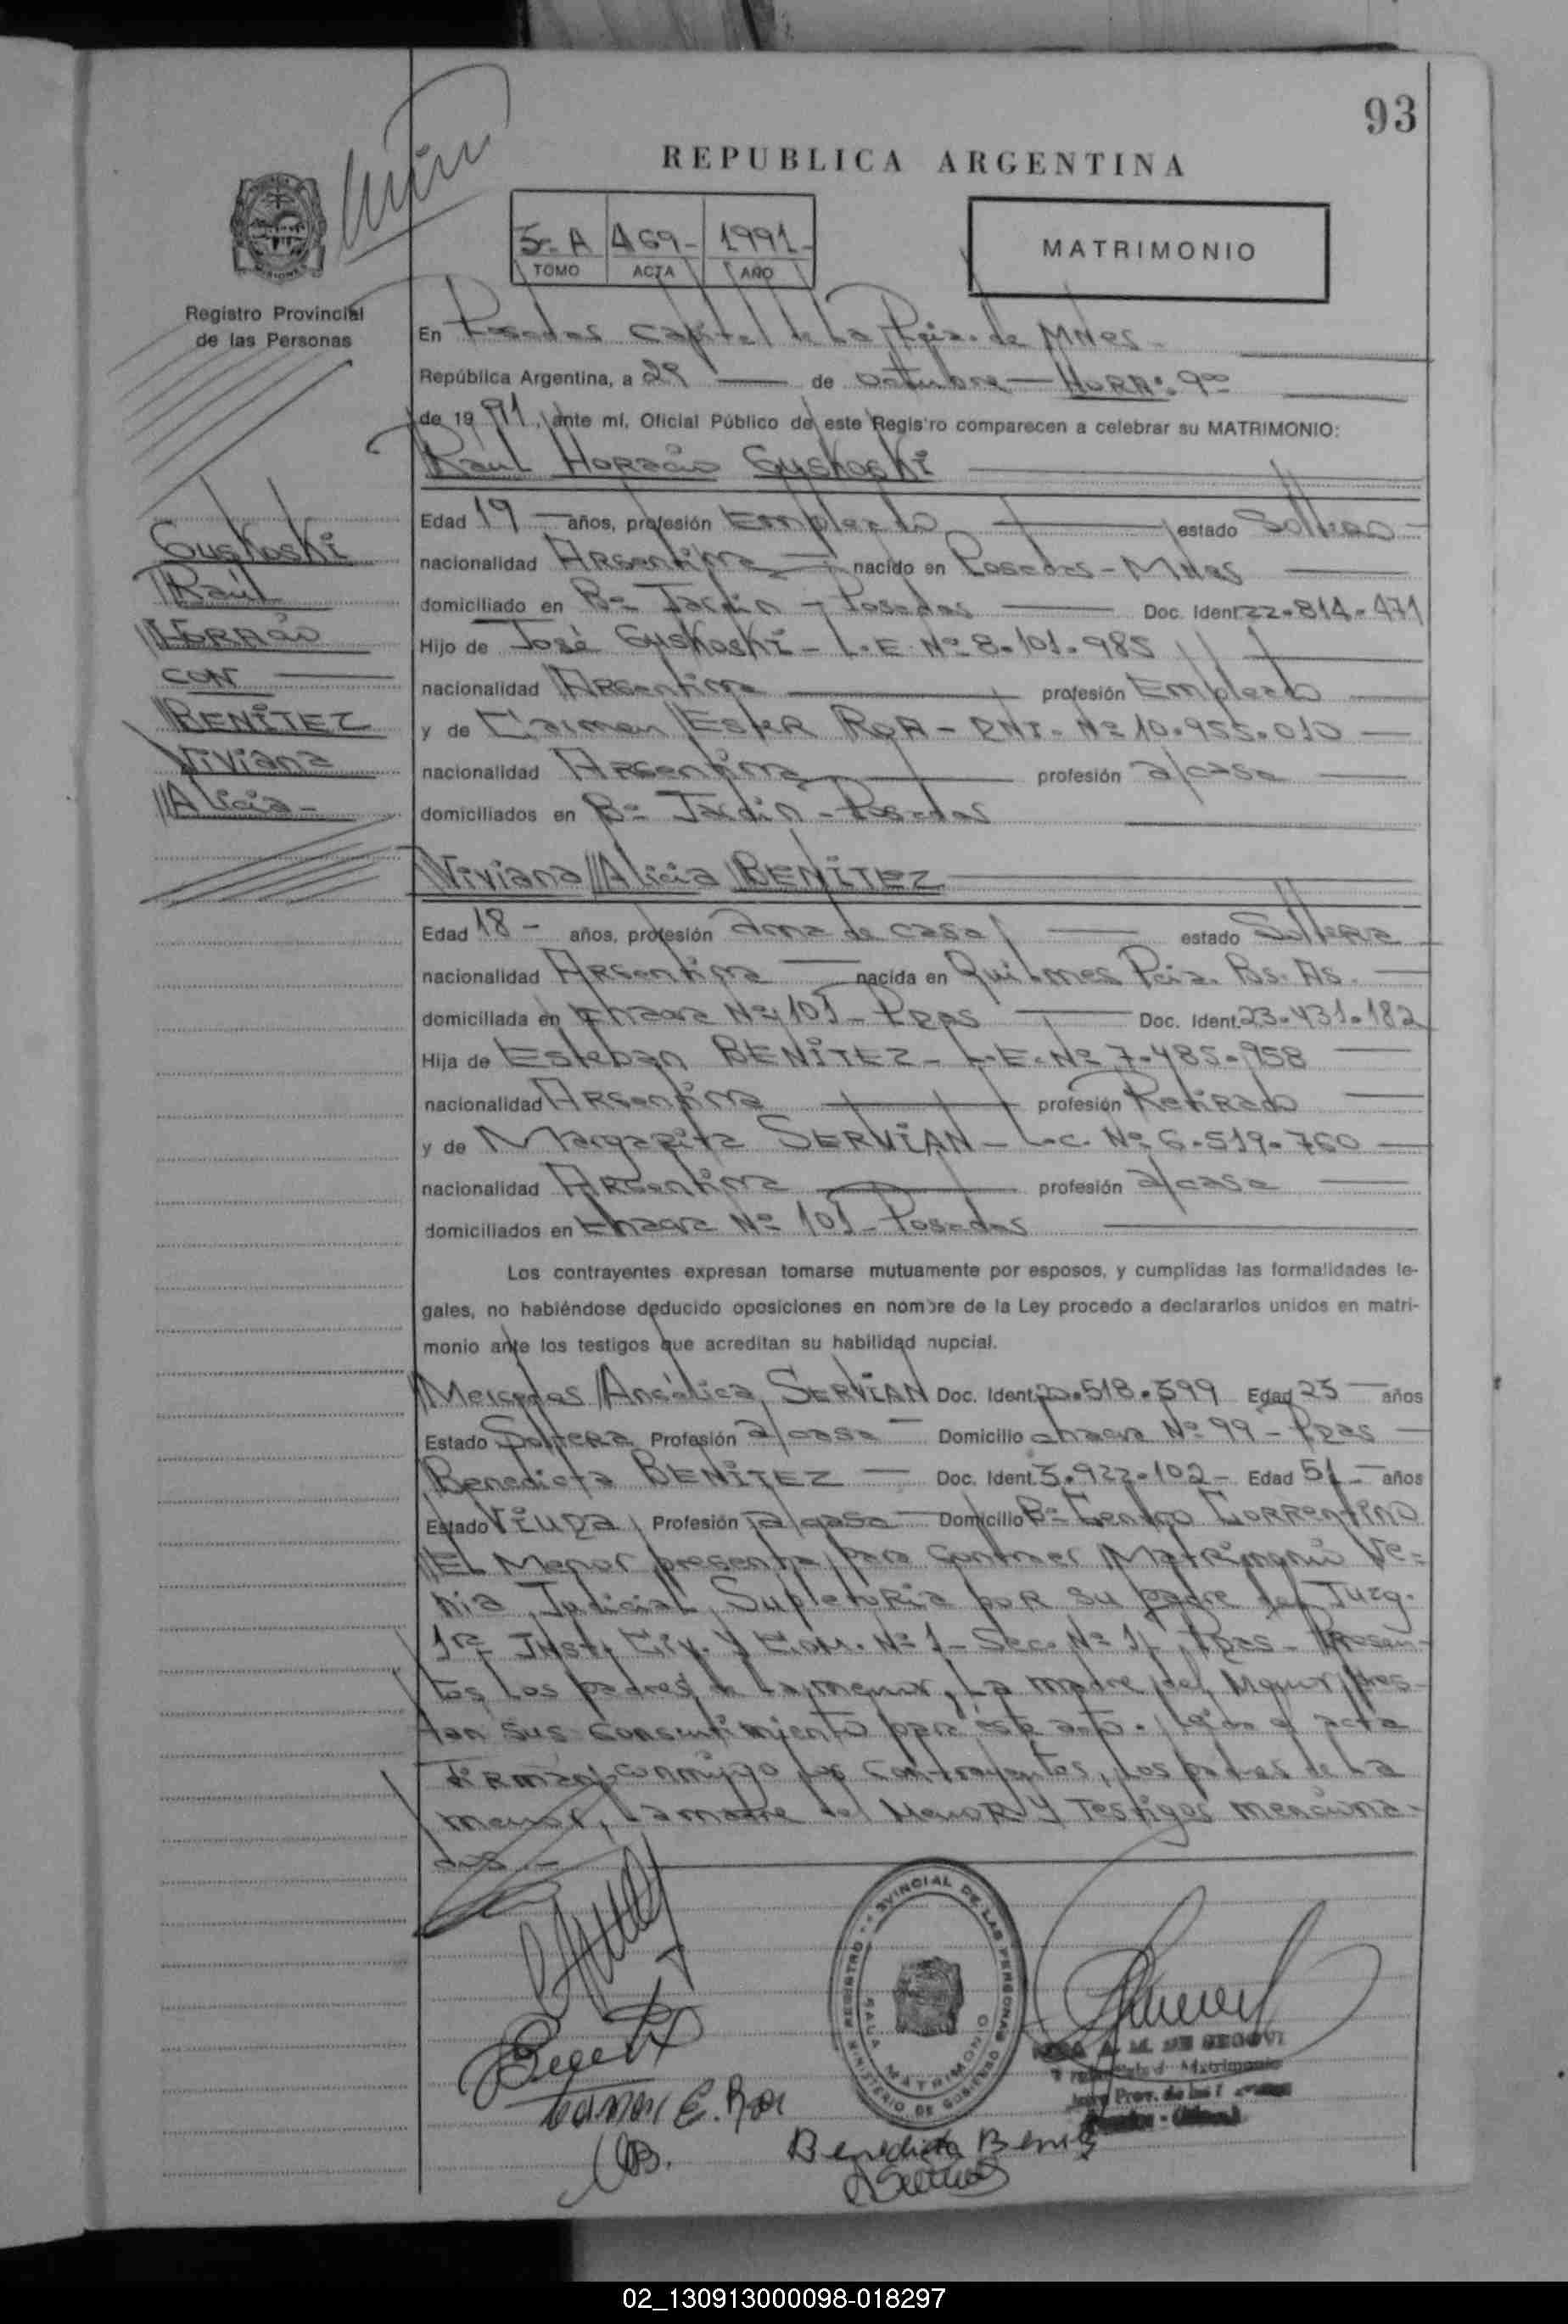 93
REPUBLICA ARGENTINA
5-A 469- 1991-
TOMO ACTA AÑO
MATRIMONIO
Registro Provincial
de las Personas
En Posadas Capital de La Pcia. de Mnes-
República Argentina, a 29 de octubre HORA: 9⁰⁰
de 1991, ante mí, Oficial Público de este Registro comparecen a celebrar su MATRIMONIO:
Raul Horacio Gyskoski
Edad 19 años, profesión Empleado estado Soltero
nacionalidad Argentina nacido en Posadas-Mnes
domiciliado en Bº Jardin - Posadas Doc. Ident. 22.814.471
Hijo de José Gyskoski - L.E. Nº 8.101.985
nacionalidad Argentina profesión Empleado
y de Carmen Ester ROA - DNI. Nº 10.955.010
nacionalidad Argentina profesión a/casa
domiciliados en Bº Jardin - Posadas
Gyskoski
Raúl
Horacio
CON
BENITEZ
Viviana
Alicia-
Viviana Alicia BENITEZ
Edad 18 - años, profesión Ama de casa estado Soltera
nacionalidad Argentina nacida en Quilmes Pcia. Bs. As.
domiciliada en Chacra Nº 101 - Pdas Doc. Ident. 23.431.182
Hija de Esteban BENITEZ - L.E. Nº 7.485.958
nacionalidad Argentina profesión Retirado
y de Margarita SERVIAN - L.C. Nº 6.519.760
nacionalidad Argentina profesión a/casa
domiciliados en Chacra Nº 101 - Posadas
Los contrayentes expresan tomarse mutuamente por esposos, y cumplidas las formalidades le-
gales, no habiéndose deducido oposiciones en nombre de la Ley procedo a declararlos unidos en matri-
monio ante los testigos que acreditan su habilidad nupcial.
Mercedes Angélica SERVIAN Doc. Ident. 20.518.599 Edad 23 años
Estado Soltera Profesión a/casa Domicilio Chacra Nº 99 - Pdas
Benedicta BENITEZ Doc. Ident. 3.922.102 - Edad 51 años
Estado Viuda Profesión a/casa Domicilio Bº Centro Correntino
El Menor presenta para contraer Matrimonio Ve-
nia Judicial Supletoria por su padre del Juzg.
1ra Inst. Civ. y Com. Nº 1 - Sec. Nº 1, Pdas - Presen-
tes los padres de la menor, La madre del Menor, pres-
tan sus consentimiento para este acto. leida el acta
Firman conmigo los contrayentes, los padres de La
menor, la madre del Menor y Testigos menciona-
dos.-
REGISTRO PROVINCIAL DE LAS PERSONAS
MINISTERIO DE GOBIERNO
SALA MATRIMONIO
A. M. DE SEGOVI
Matrimonio
Prov. de las
Carmen E. Roa
Benedicta Benitez
02_130913000098-018297